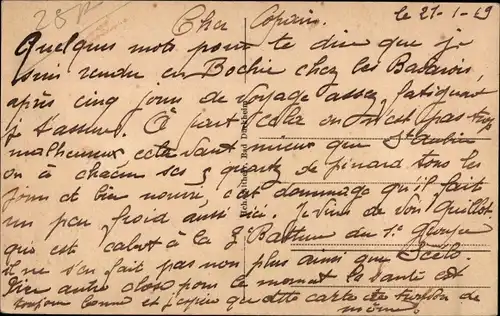 Cher Copain. le 21-1-19
Quelques mots pour te dire que je
suis rendu en Bochie chez les Bavarois,
après cinq jours de voyage assez fatiguant
je t'assure. À part cela on n'est pas trop
malheureux, cela vaut mieux que St Aubin
on a chacun ses 3 quarts de pinard tous les
jours et bien nourri, c'est dommage qu'il fait
un peu froid aussi ici. Je viens de voir Guillot
qui est cabot à la 7e Batterie du 1e Groupe
il ne s'en fait pas non plus ainsi que
Rien autre chose pour le moment la santé est
toujours bonne et j'espère que cette carte te trouvera de
même
Bad Dürkheim